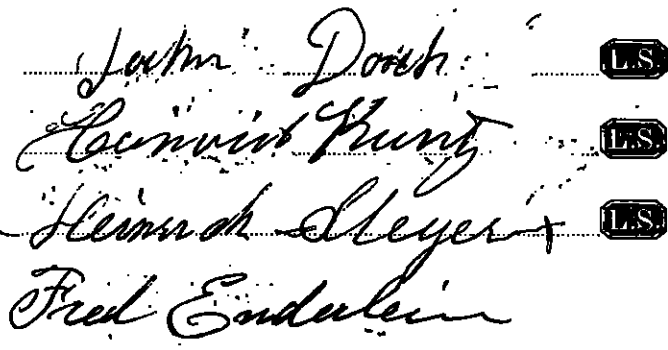 John Dorch L.S.
Heinrich Kunz L.S.
Heinrich Meyer L.S.
Fred Enderlein